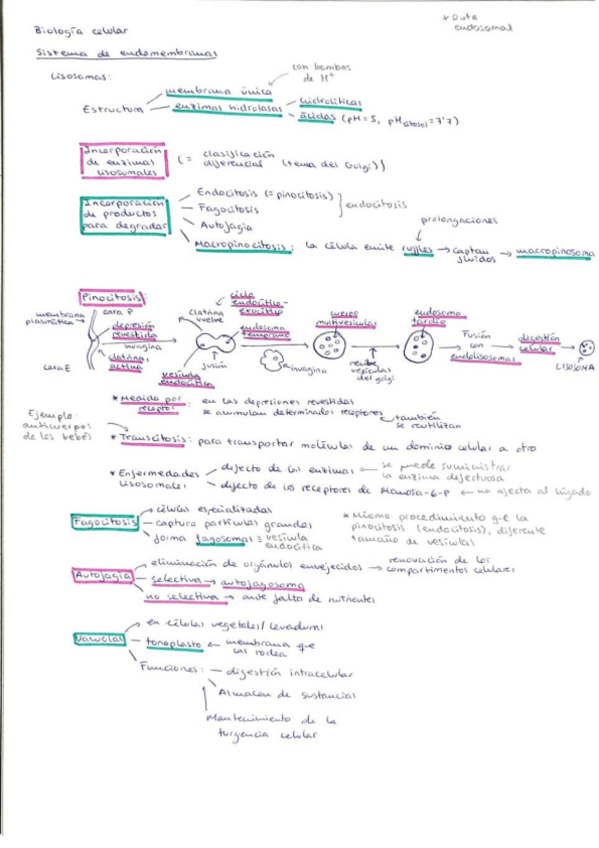 * Ruta
endosomal
Biología celular
Sistema de endomembranas
Lisosomas:
con bombas
de H⁺
Estructura
membrana única
enzimas hidrolasas
hidrolíticas
ácidas (pH = 5, pH citosol = 7'7)
Incorporación
de enzimas
lisosomales
(= clasificación
diferencial (tema del Golgi))
Incorporación
de productos
para degradar
Endocitosis (= pinocitosis)
Fagocitosis
endocitosis
Autofagia
Macropinocitosis: la célula emite ruffles → captan
fluidos → macropinosoma
prolongaciones
Pinocitosis:
membrana
plasmática
cara P
cara E
depresión
revestida
invagina
clatrina
activa
vesícula
endocítica
clatrina
vuelve
fusión
ciclo
endocítico-
exocítico
endosoma
temprano
invagina
cuerpo
multivesicular
recibe
vesículas
del golgi
endosoma
tardío
Fusión
con
endolisosomas
digestión
celular
LISOSOMA
* Medida por
receptor
en las depresiones revestidas
se acumulan determinados receptores
también
se reutilizan
Ejemplo:
anticuerpos
de los bebés
* Transcitosis: para transportar moléculas de un dominio celular a otro
* Enfermedades
lisosomales
defecto de las enzimas ← se puede suministrar
la enzima defectuosa
defecto de los receptores de Manosa-6-P ← no afecta al hígado
Fagocitosis
células especializadas
captura partículas grandes
forma fagosomas = vesícula
endocítica
* Mismo procedimiento que la
pinocitosis (endocitosis), diferente
tamaño de vesículas
Autofagia
eliminación de orgánulos envejecidos → renovación de los
compartimentos celulares
selectiva → autofagosoma
no selectiva → ante falta de nutrientes
Vacuolas
en células vegetales/levaduras
tonoplasto ← membrana que
las rodea
Funciones: — digestión intracelular
Almacen de sustancias
Mantenimiento de la
turgencia celular